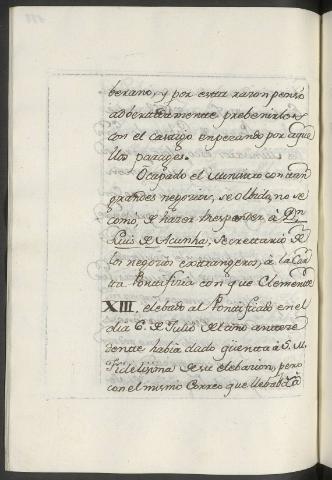 berano, y por esta razon penso
adbertidamente prebenirlos
con el castigo enperando por aque
llos parages.
Ocupado el ministro con tan
grandes negocios, se olbido, no se
como, de hazer responder, à Dn
Luis de Acunha, Secrettario de
los negocios extrangeros, à la Car
ta Pontificia con que Clemente
XIII, elebado al Pontificado en el
dia 6. de Julio del año antece
dente habia dado quenta à S. M.
Fidelisima de su elebacion, pero
con el mismo Correo que llebaba